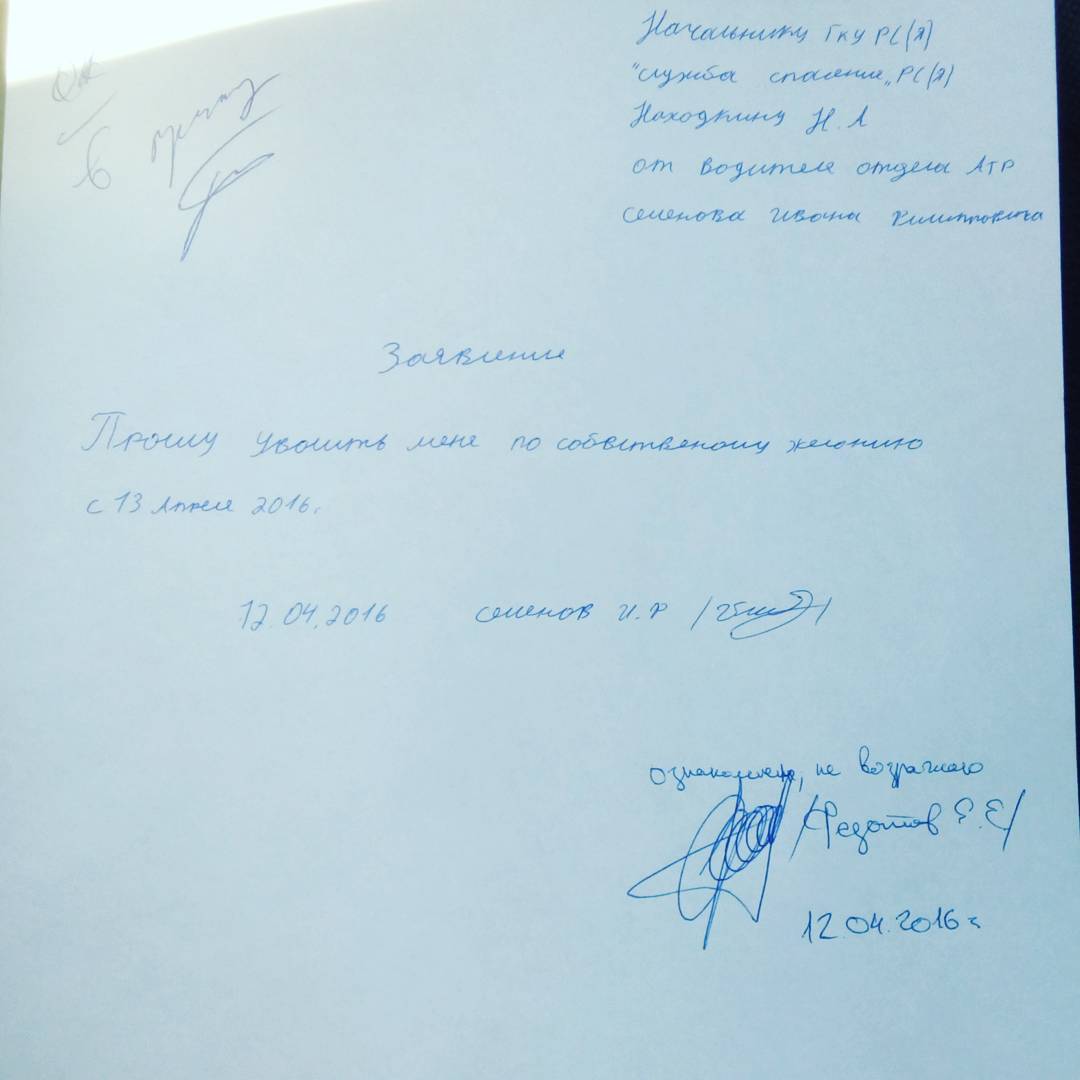 ОК
В приказ
Начальнику ГКУ РС(Я)
"Служба спасение" РС(Я)
Находкину Н.А
от водителя отдела АТР
Семенова Ивана Филипповича
Заявление
Прошу уволить меня по собственому желанию
с 13 Апреля 2016.
12.04.2016 Семенов И.Ф
ознакомлен, не возражаю
/Федотов Е.Е/
12.04.2016 г